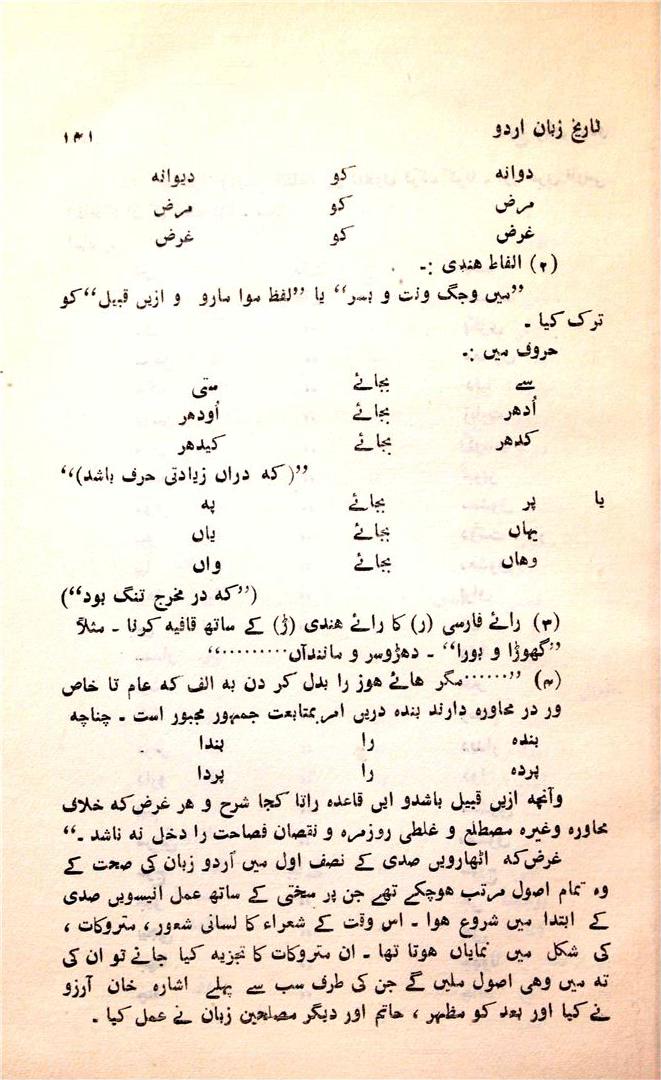 تاریخ زبان اردو ۱۴۱
دوانه کو دیوانه
مرض کو مرض
غرض کو غرض
(۲) الفاظ هندی :۔
”میں وجگ ونت و بسر“ یا ”لفظ موا مارو و ازیں قبیل“ کو
ترک کیا ۔
حروف میں :۔
سے بجائے ستی
اُدهر بجائے اُودهر
کدهر بجائے کیدهر
”(که دراں زیادتی حرف باشد)“
یا پر بجائے په
یہاں بجائے یاں
وهاں بجائے واں
(”که در مخرج تنگ بود“)
(۳) رائے فارسی (ر) کا رائے هندی (ڑ) کے ساتھ قافیه کرنا ۔ مثلاً
”گھوڑا و بورا“ ۔ دهڑوسر و مانندآں.........“
(۴) ”......مگر هائے هوز را بدل کر دن به الف که عام تا خاص
ور در محاوره دارند بنده دریں امر بمتابعت جمهور مجبور است ۔ چناچه
بنده را بندا
پرده را پردا
وآنچه ازیں قبیل باشدو ایں قاعده راتا کجا شرح و هر غرض که خلاف
محاوره وغیره مصطلع و غلطی روزمره و نقصان فصاحت را دخل نه ناشد ۔“
غرض که اٹھارویں صدی کے نصف اول میں اُردو زبان کی صحت کے
وه تمام اصول مرتب هوچکے تھے جن پر سختی کے ساتھ عمل انیسویں صدی
کے ابتدا میں شروع هوا ۔ اس وقت کے شعراء کا لسانی شعور ، متروکات ،
کی شکل میں نمایاں هوتا تھا ۔ ان متروکات کا تجزیه کیا جائے تو ان کی
ته میں وهی اصول ملیں گے جن کی طرف سب سے پہلے اشاره خان آرزو
نے کیا اور بعد کو مظہر ، حاتم اور دیگر مصلحین زبان نے عمل کیا ۔